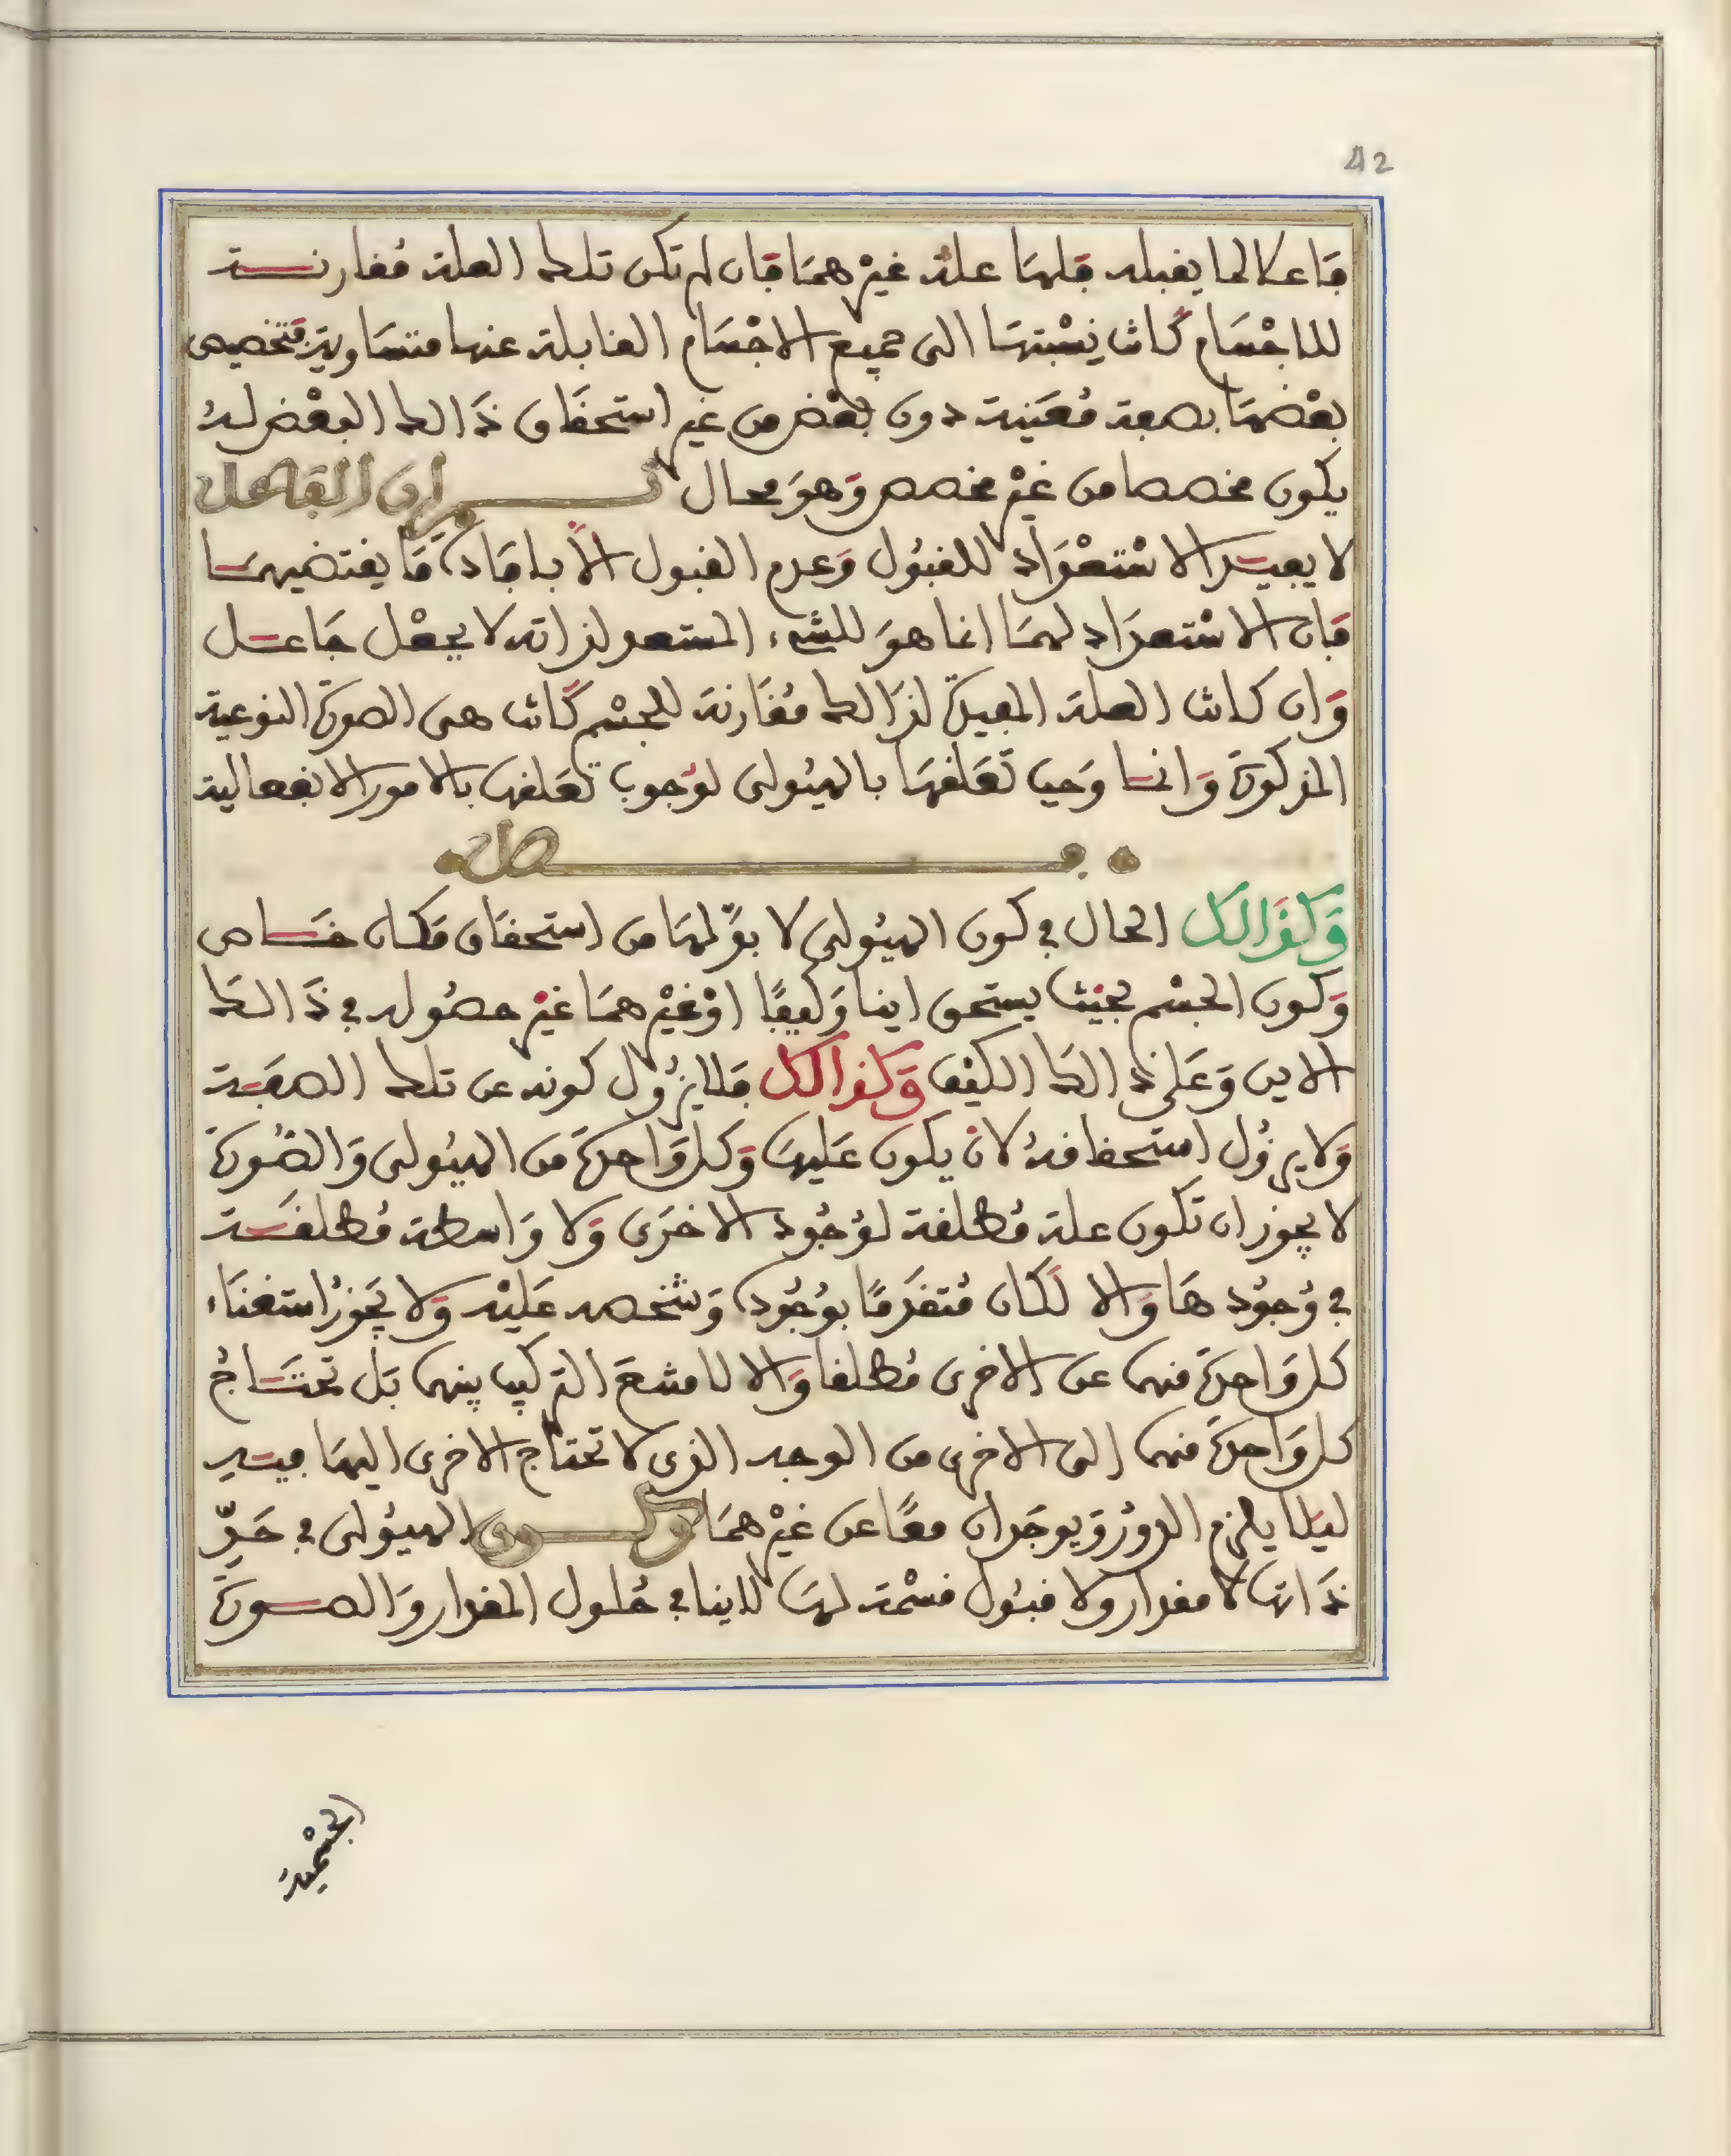 42
فاعلا لما يقبله فلها علة غيرهما فان لم تكن تلك العلة مقارنة
للاجسام كانت نسبتها الى جميع الاجسام القابلة عنها متساوية فتخصيص
بعضها بصفة معينة دون بعض من غير استحقاق ذالك البعض له
يكون مخصصا من غير مخصص وهو محال ثم ان الفاعل
لا يفيد الاستعداد للقبول وعدم القبول الا بافادة ما يقتضيهما
فان الاستعداد لهما انما هو للشيء المستعد لذاته لا بجعل جاعل
وان كانت العلة المفيدة لذالك مقارنة للجسم كانت هى الصورة النوعية
المذكورة وانما وجب تعلقها بالهيولى لوجوب تعلقها بالامور الانفعالية
فصل
وكذالك الحال في كون الهيولى لا بد لها من استحقاق مكان خاص
وكون الجسم بحيث يستحق اينا وكيفا او غيرهما غير حصوله في ذالك
الاين وعلى ذالك الكيف وكذالك فلا يزول كونه عن تلك الصفة
ولا يزول استحقاقه لان يكون عليها وكل واحدة من الهيولى والصورة
لا يجوز ان تكون علة مطلقة لوجود الاخرى ولا واسطة مطلقة
في وجودها والا لكان متقدما بوجوده وتشخصه عليه ولا يجوز استغناء
كل واحدة منهما عن الاخرى مطلقا والا لامتنع التركيب بينهما بل تحتاج
كل واحدة منهما الى الاخرى من الوجه الذى لا تحتاج الاخرى اليها فيه
ليلا يلزم الدور ويوجدان معا عن غيرهما وكون الهيولى في حد
ذاتها لا مقدار ولا قبول قسمة لها لا ينافي حلول المقدار والصورة
الجسمية